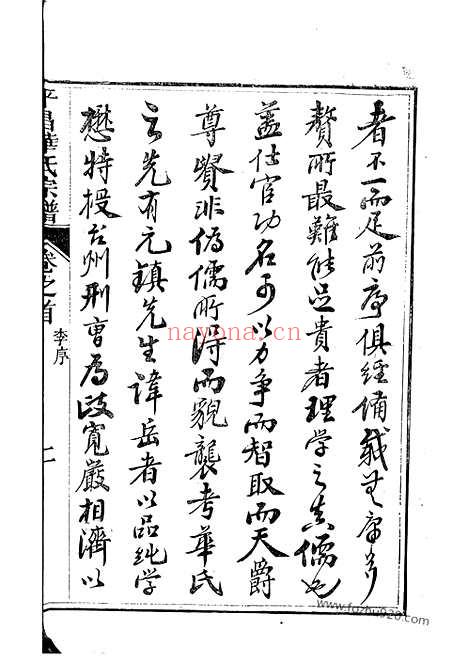 者不一而足前序俱經備載無庸多
贅所最難能足貴者理学之真儒也
蓋仕官功名可以力爭而智取而天爵
尊貴非偽儒所得而貌襲考華氏
之先有元鎮先生諱岳者以品純学
懋特授台州刑曹為政寬嚴相濟以
平昌華氏宗譜
卷之首
李序
二
nayona.cn
www.fuzhu920.com